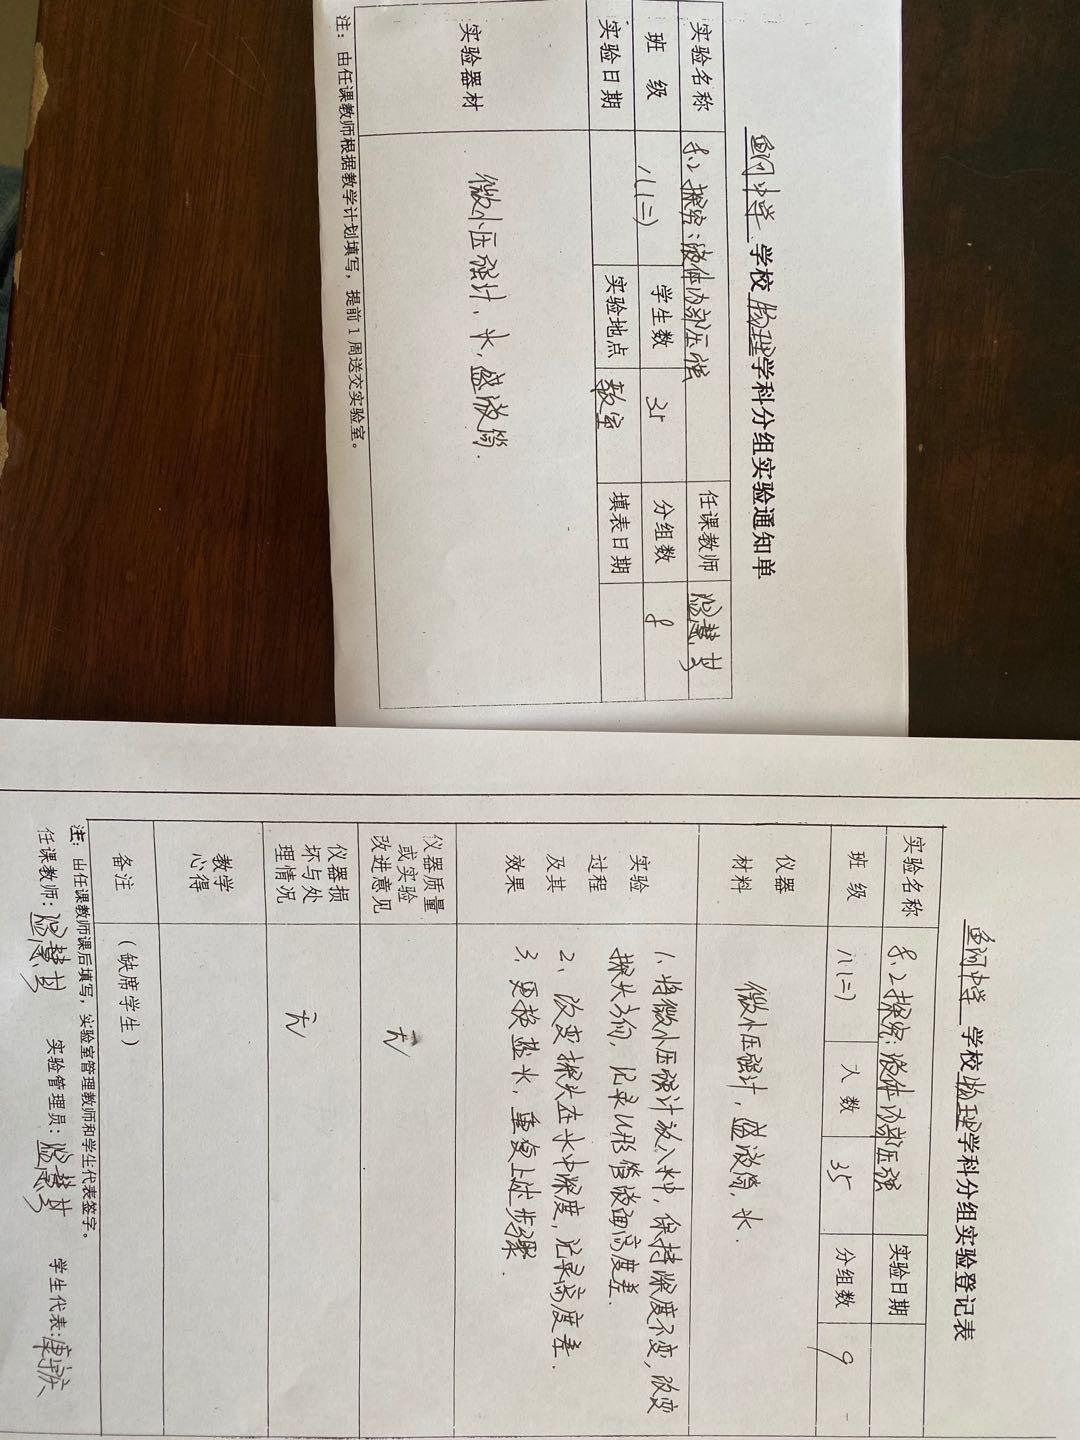 鱼河中学 学校物理学科分组实验通知单
实验名称 8.2探究:液体内部压强 任课教师
班 级 八(二) 学生数 35 分组数 8
实验日期 实验地点 教室 填表日期
实验器材 微小压强计、水,盛液筒.
注:由任课教师根据教学计划填写,提前1周送交实验室。
鱼河中学 学校物理学科分组实验登记表
实验名称 8.2探究:液体内部压强 实验日期
班 级 八(二) 人 数 35 分组数 9
仪器
材料
微小压强计,盛液筒,水.
实验
过程
及其
效果
1、将微小压强计放入水中,保持深度不变,改变
探头方向,记录U形管液面高度差.
2、改变探头在水中深度,记录高度差.
3、更换盐水,重复上述步骤.
仪器质量
或实验
改进意见
无
仪器损
坏与处
理情况
无
教学
心得
备注 (缺席学生)
注:由任课教师课后填写,实验室管理教师和学生代表签字。
任课教师: 实验管理员: 学生代表: